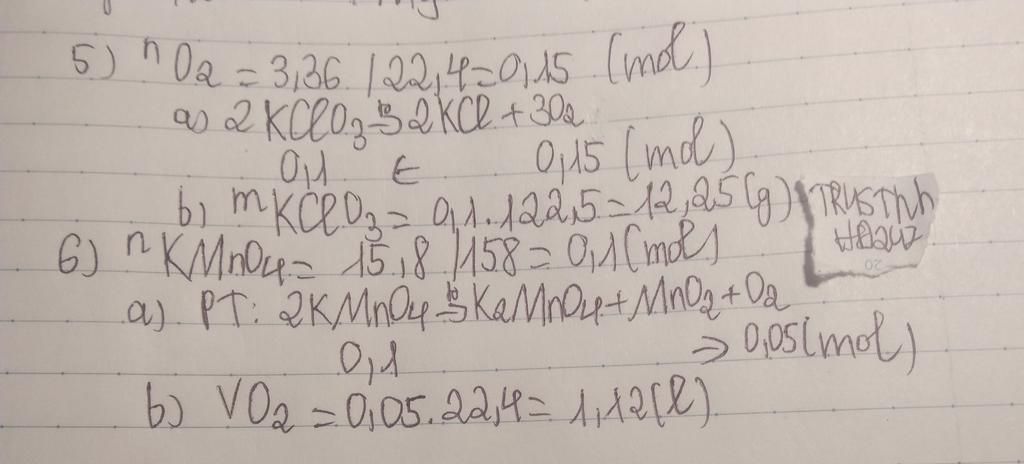 5) nO2 = 3,36 / 22,4 = 0,15 (mol)
a) 2KClO3 -> 2KCl + 3O2
0,1 ← 0,15 (mol)
b) mKClO3 = 0,1.122,5 = 12,25 (g)
6) nKMnO4 = 15,8 / 158 = 0,1 (mol)
a) PT: 2KMnO4 -> K2MnO4 + MnO2 + O2
0,1 => 0,05 (mol)
b) VO2 = 0,05.22,4 = 1,12 (l)
20